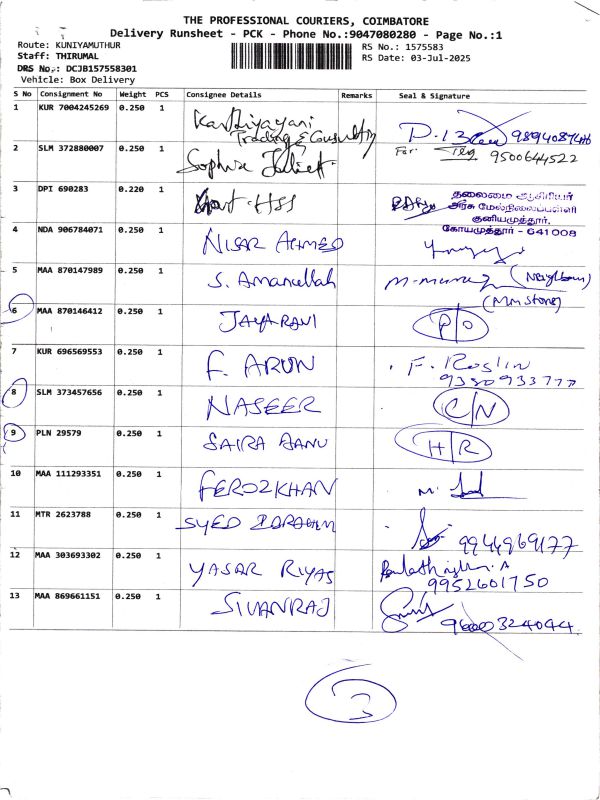 THE PROFESSIONAL COURIERS, COIMBATORE
Delivery Runsheet - PCK - Phone No.:9047080280 - Page No.:1
Route: KUNIYAMUTHUR
RS No.: 1575583
Staff: THIRUMAL
RS Date: 03-Jul-2025
DRS No.: DCJB157558301
Vehicle: Box Delivery
S No Consignment No Weight PCS Consignee Details Remarks Seal & Signature
1 KUR 7004245269 0.250 1 Karthiyayani
Trading & Consultancy
2 SLM 372880007 0.250 1 Sophia Juliet
For 9500644522
3 DPI 690283 0.220 1 Govt. HSS
தலைமை ஆசிரியர்
அரசு மேல்நிலைப்பள்ளி
குனியமுத்தூர்,
கோயமுத்தூர் - 641008
4 NDA 906784071 0.250 1 NISAR AHMED
5 MAA 870147989 0.250 1 S. Amanullah (Neighbour)
(MM Stone)
6 MAA 870146412 0.250 1 JAYARANI P/O
7 KUR 696569553 0.250 1 F. ARUN F. Roslin
9380933777
8 SLM 373457656 0.250 1 NASEER C/N
9 PLN 29579 0.250 1 SAIRA BANU H/R
10 MAA 111293351 0.250 1 FEROZKHAN M.
11 MTR 2623788 0.250 1 SYED IBRAHIM
9944969177
12 MAA 303693302 0.250 1 YASAR RIYAS
9952601750
13 MAA 869661151 0.250 1 SIVANRAJ
9600324044
3